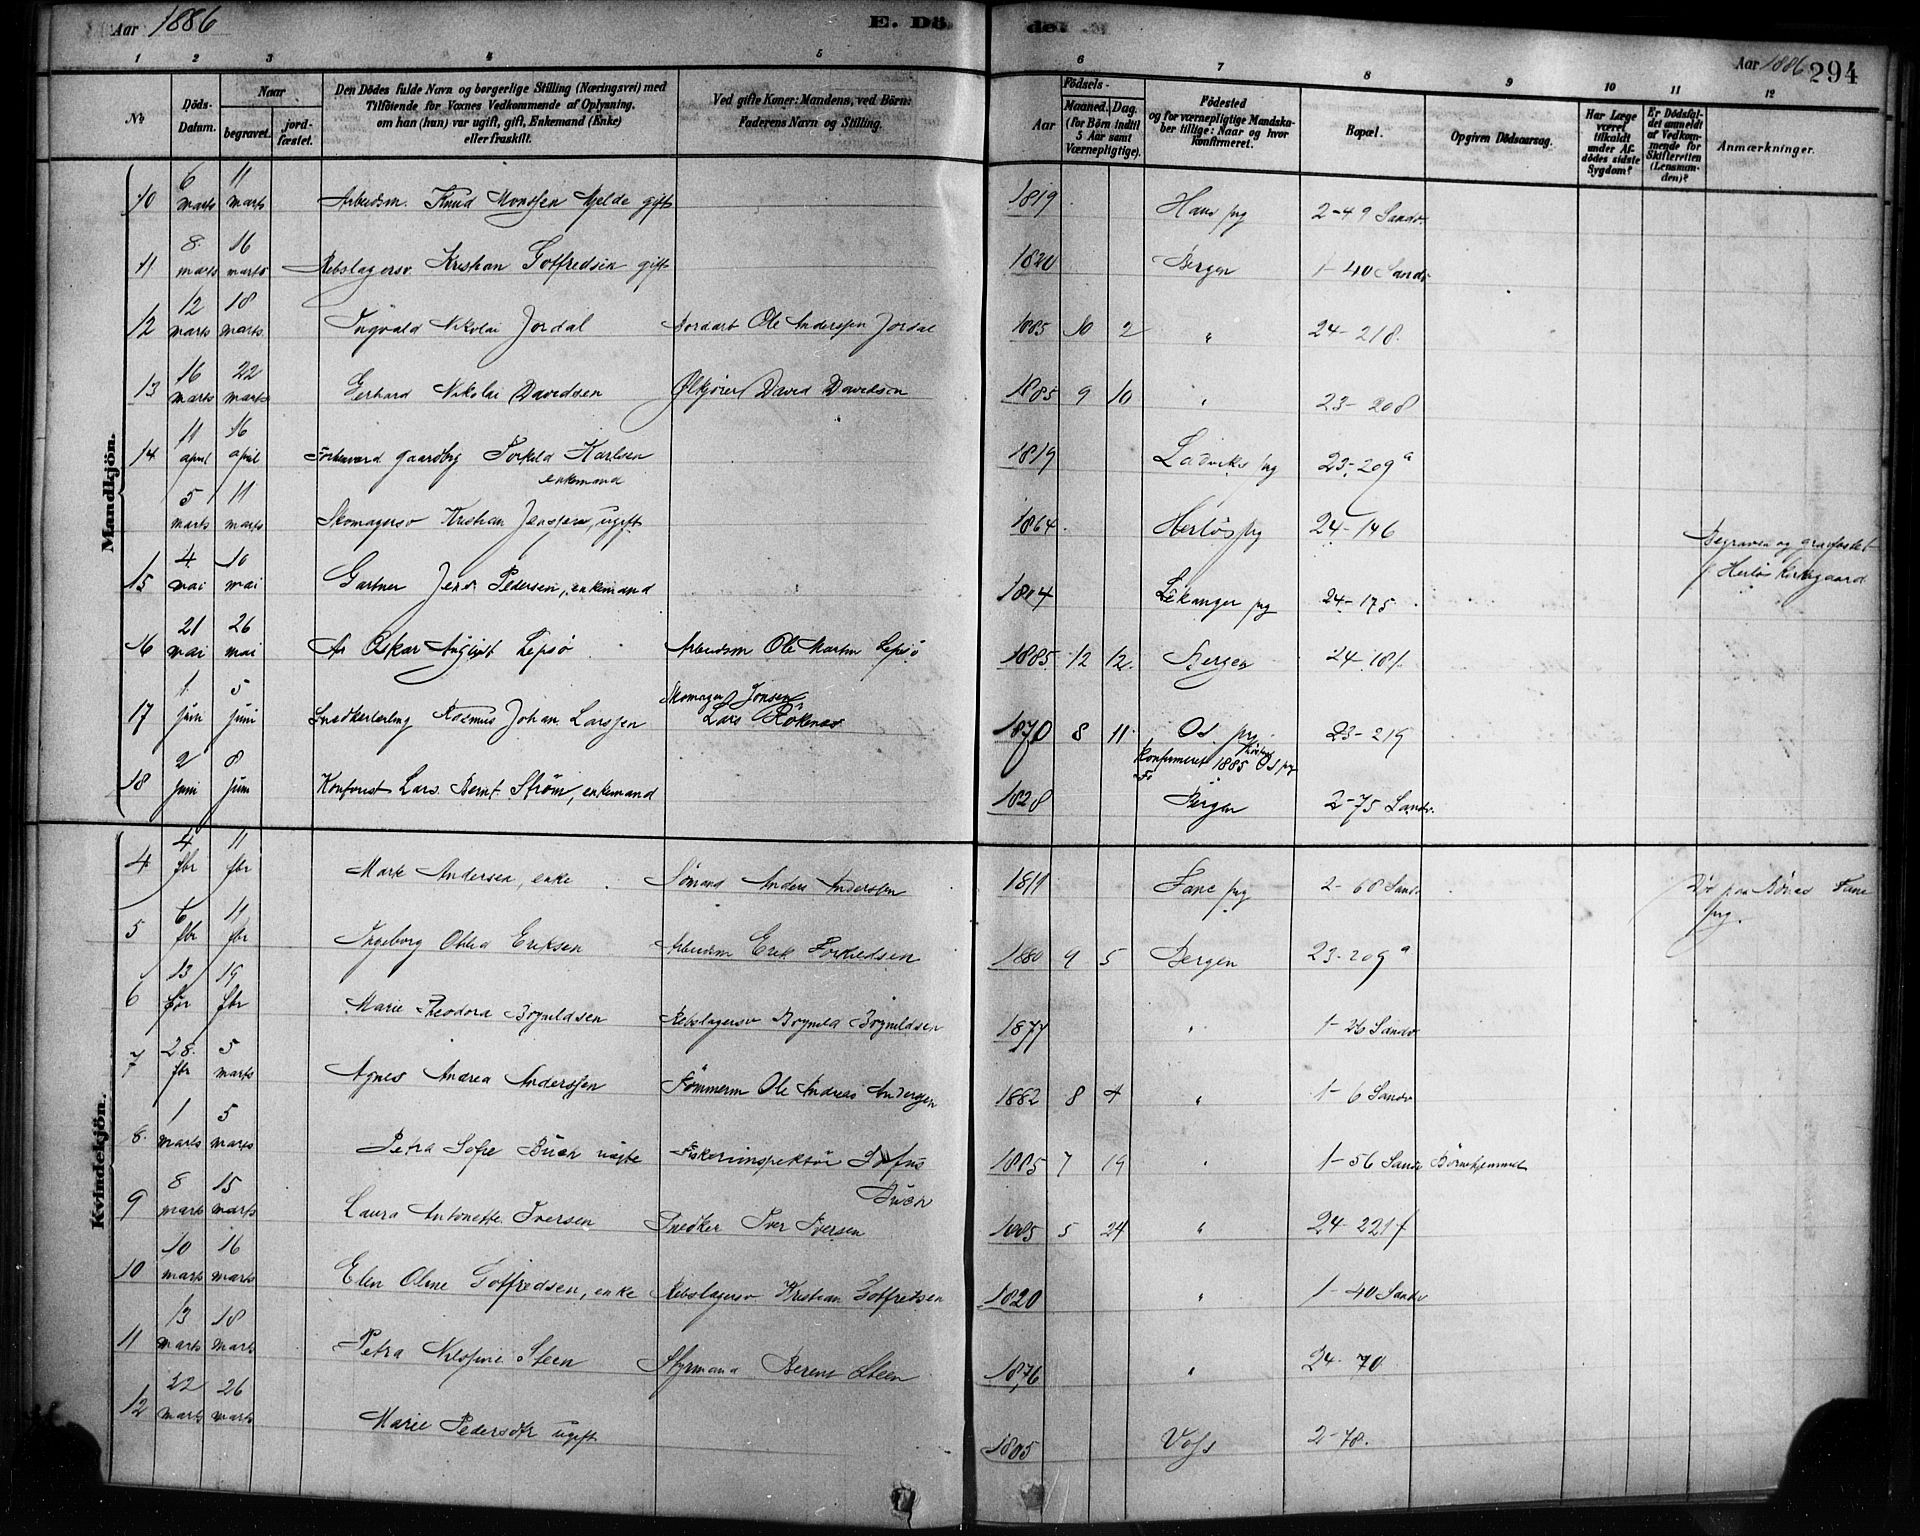 Aar 1886 E. Dö de.
Aar 1886 294
1 2 3 4 5 6 7 8 9 10 11 12
No
Döds-Datum.
Naar
begravet.
jord-fæstet.
Den Dödes fulde Navn og borgerlige Stilling (Næringsvei) med
Tilföiende for Voxnes Vedkommende af Oplysning,
om han (hun) var ugift, gift, Enkemand (Enke)
eller fraskilt.
Ved gifte Koner: Mandens, ved Börn:
Faderens Navn og Stilling.
Födsels-
Aar
Maaned. Dag.
(for Börn indtil
5 Aar samt
Værnepligtige).
Födested
og for værnepligtige Mandska-
ber tillige: Naar og hvor
konfirmeret.
Bopæl.
Opgiven Dödsaarsag.
Har Læge
været
tilkaldt
under Af-
dödes sidste
Sygdom?
Er Dödsfal-
det anmeldt
af Vedkom-
mende for
Skifteretten
(Lensman-
den)?
Anmærkninger.
Mandkjön.
10 6 marts 11 marts Arbeidsm. Knud Monssen Mjelde gift 1819 Haus pg 2-49 Sandv.
11 8 marts 16 marts Rebslagersv Kristian Gotfredsen gift 1820 Bergen 1-40 Sandv
12 12 marts 18 marts Ingvald Nikolai Jordal Jordarb Ole Anderssen Jordal 1885 10 2 " 24-218.
13 16 marts 22 marts Gerhard Nikolai Davidsen Ølkjører David Davidsen 1885 9 10 " 23-208
14 11 april 16 april Forhenværd gaardbrg Torkild Karlsen 1819 Ladviks pg 23-209a
enkemand
5 marts 11 marts Skomagersv Kristian Jenssen, ugift 1864 Herlös pg 24-146 Begraven og gravfæstet
p Herlö Kirkegaard
15 4 mai 10 mai Gartner Jens Pedersen, enkemand 1804 Lekanger pg 24-175
16 21 mai 26 mai Oskar Lepsö Arbeidsm Ole Martin Lepsö 1885 12 12 Bergen 24-181
17 1 juni 5 juni Snedkerlærling Rasmus Johan Larssen Skomager Jonsen 1870 8 11 Os pg 23-219
Lars Rökenes
konfirmeret 1885 Os pg
18 2 juni 8 juni Lars Bernt Ström, enkemand 1828 Bergen 2-75 Sandv.
Kvindekjön.
4 4 fbr 11 fbr Marte Andersen, enke Sömand Anders Anderssen 1811 Fane pg 2-68 Sandv Död paa Fane
pg.
5 6 fbr 11 fbr Ingeborg Eriksen Arbeidsm Erik 1880 9 5 Bergen 23-209a
6 13 fbr 19 fbr Marie Theodora Bognildsen Rebslagersv Bognild Bognildsen 1877 " 1-26 Sandv
7 28 fbr 5 marts Agnes Andrea Anderssen Tömmerm Ole Andreas Anderssen 1882 8 4 " 1-6 Sandv
8. 1 marts 5 marts Petra Sofie Buch uægte Fiskeriinspektör 1885 7 19 " 1-56 Sandv Börnehjemmet
Buch
9 8 marts 15 marts Laura Antonette Iversen Snedker Iver Iversen 1885 5 24 " 24-221f
10 10 marts 16 marts Elen Oline Gotfredsen, enke Rebslagersv Kristian Gotfredsen 1820 " 1-40 Sandv
11 13 marts 18 marts Petra Nilsine Steen Styrmand Berent Steen 1876 " 24-70
12 22 marts 26 marts Marie Pedersdtr ugift 1805 Voss 2-78.